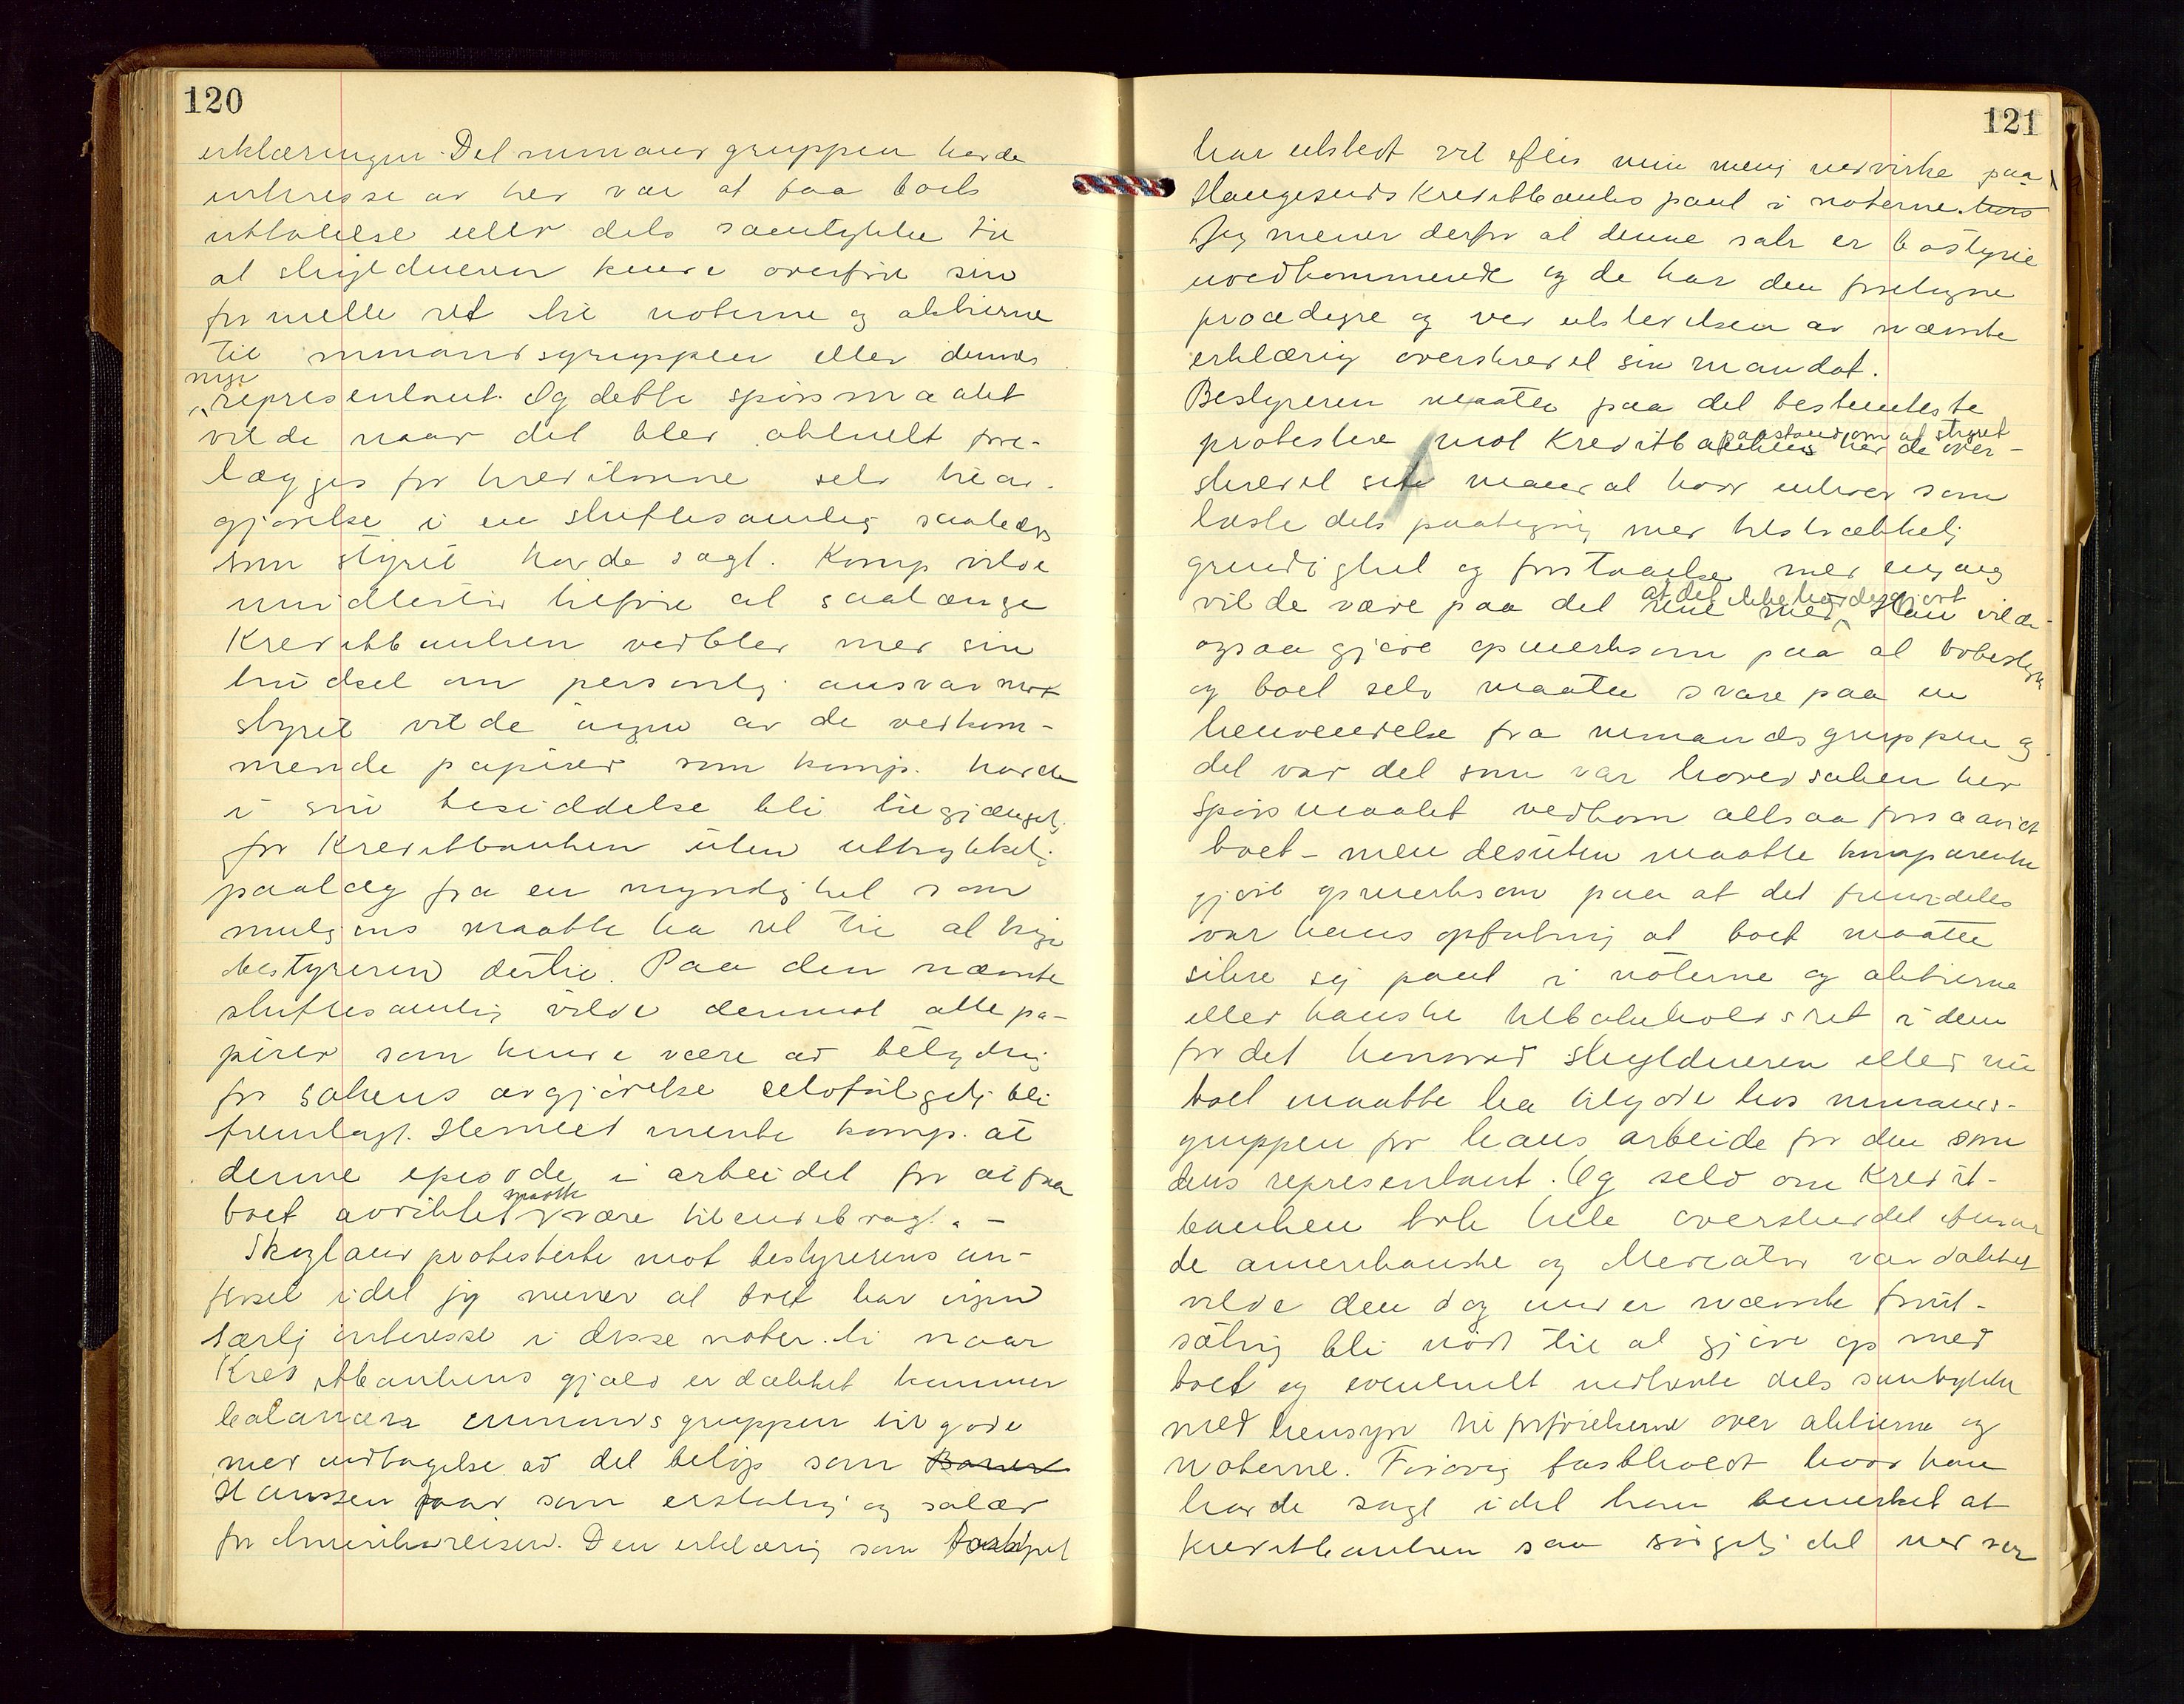 120
erklæringen. Det rumansgruppen havde
interesse av her var at faa boets
uttalelse eller dets samtykke til
at skyldneren kunde overføre sin
formelle ret til noterne og aktierne
til rumansgruppen eller dennes
nye
representant. Og dette spørsmaalet
vilde naar det blev aktuelt fore-
lægges for kreditorene selv til av-
gjørelse i en skiftesamling saaledes
som styret havde sagt. Komp vilde
imidlertid tilføie at saalænge
Kreditbanken vedblev med sin
trudsel om personlig ansvar mot
styret vilde ingen av de vedkom-
mende papirer som komp. havde
i sin besiddelse bli tilgjængelig
for Kreditbanken uten uttrykkelig
paalæg fra en myndighet som
muligens maatte ha ret til at
bestyreren dertil. Paa den nævnte
skiftesamling vilde derimot alle pa-
pirer som kunde være av betydning
for sakens avgjørelse selvfølgelig bli
fremlagt. Hermed mente komp. at
denne episode i arbeidet for at faa
boet avviklet maatte være tilendebragt. -
Skogland protesterte mot bestyrerens an-
førsel idet jeg mener at boet har ingen
særlig interesse i disse noter. Ti naar
Kreditbankens gjæld er dækket kommer
balancen rumansgruppen til gode
med undtagelse av det beløp som Baner
Hanssen faar som erstatning og salær
for Amerikareisen. Den erklæring som bostyret
121
har utstedt vil efter min mening nedvirke paa
Haugesunds Kreditbanks pant i noterne.
Jeg mener derfor at denne sak er bostyret
uvedkommende og de har den foretagne
procedyre og ved utstedelsen av nævnte
erklæring overskredet sin mandat.
Bestyreren maatte paa det bestemteste
protestere mot Kreditbankens paastand om at styret havde over-
skredet sit mandat hvor enhver som
læste dets paategning med tilstrækkelig
grundighet og forstaaelse med engang
vilde være paa det rene med at det ikke havde gjort. Han vilde
ogsaa gjøre opmerksom paa at bobestyr
og boet selv maatte svare paa en
henvendelse fra rumansgruppen og
det var det som var hovedsaken her
Spørsmaalet vedkom altsaa forsaavidt
boet - men desuten maatte komparenten
gjøre opmerksom paa at det fremdeles
var hans opfatning at boet maatte
sikre sig pant i noterne og aktierne
eller kanske tilbakeholdsret i dem
for det honorar skyldneren eller nu
boet maatte ha tilgode hos rumans-
gruppen for hans arbeide for den som
dens representant. Og selv om Kredit-
banken tok hele overskuddet efterat
de amerikanske og Mercator var dækket
vilde den dog under nævnte forut-
sætning bli nødt til at gjøre op med
boet og eventuelt indhente dets samtykke
med hensyn til forføielserne over aktierne og
noterne. Forøvrig fastholdt hvad han
havde sagt idet han bemerket at
Kreditbanken saa sørgelig det end var